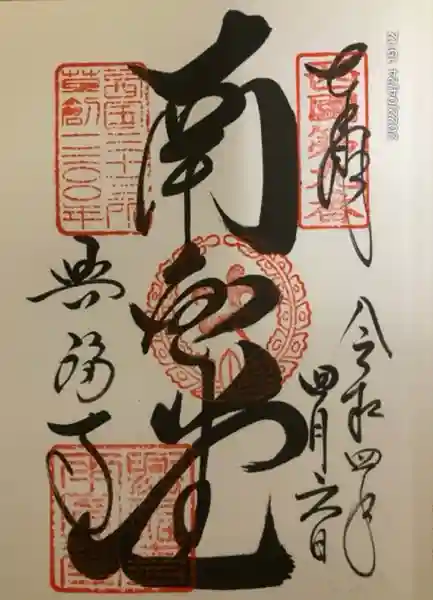 奉拝
西國第九番
令和四年
四月六日
南圓堂
西国三十三所
草創一三〇〇年
興福寺
2022/04/24 19:02